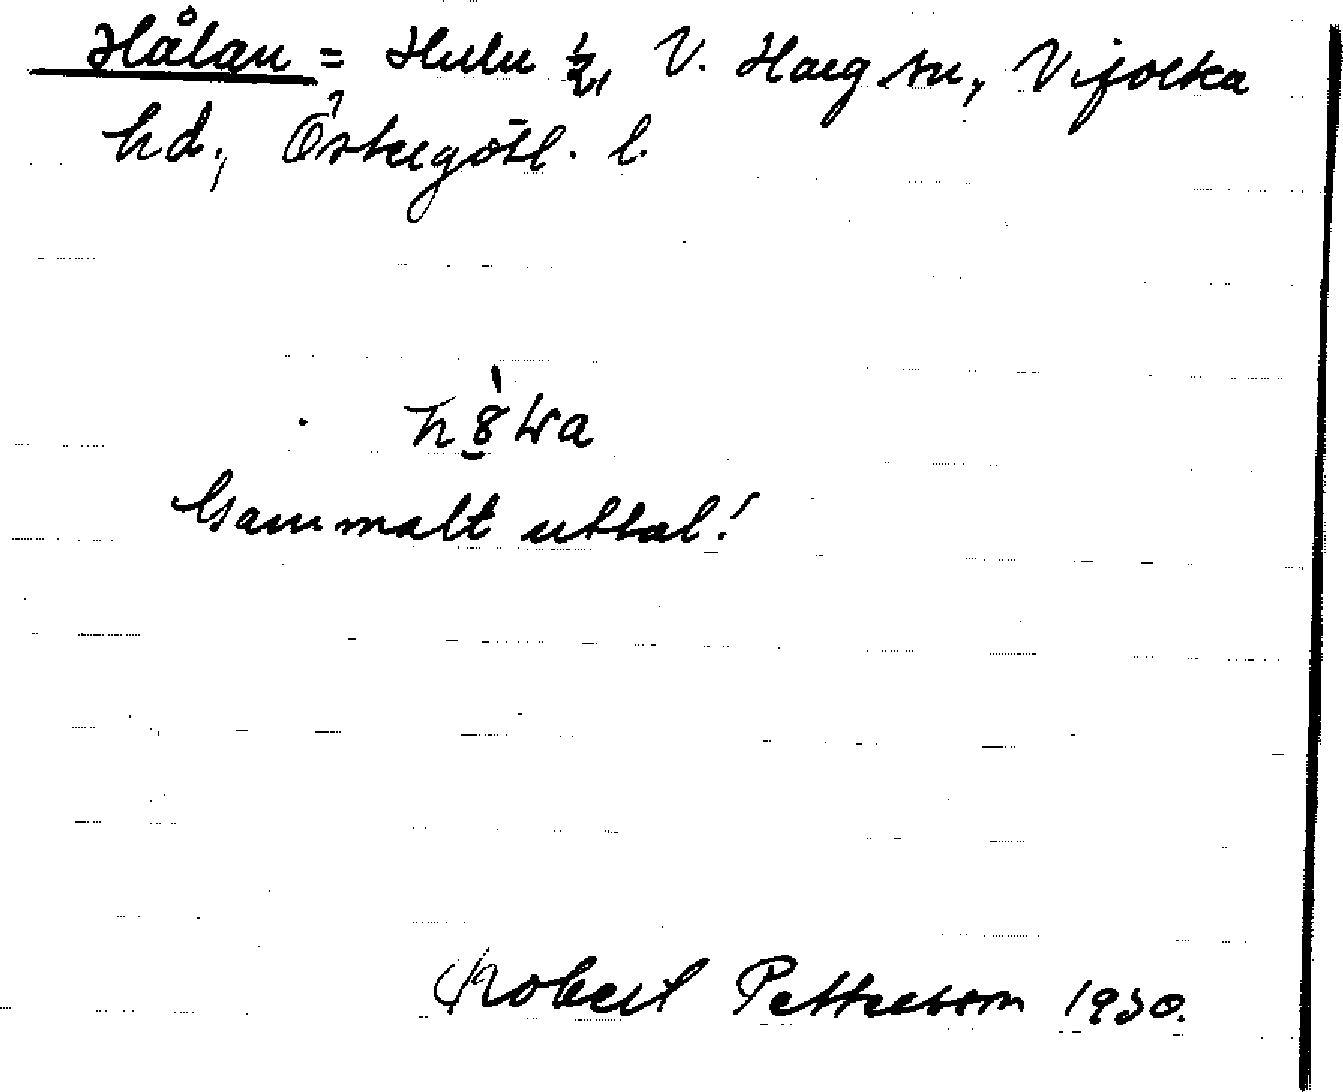 Hålan = Hulu ½, V. Harg sn, Vifolka
hd., Östergötl. l.
Gammalt uttal!
Robert Pettersson 1930.